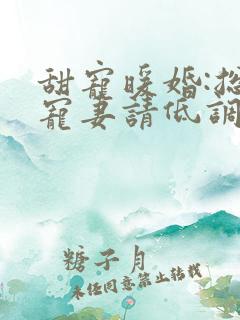 甜寵暖婚:總
寵妻請低調
糖子月
未经同意禁止转载